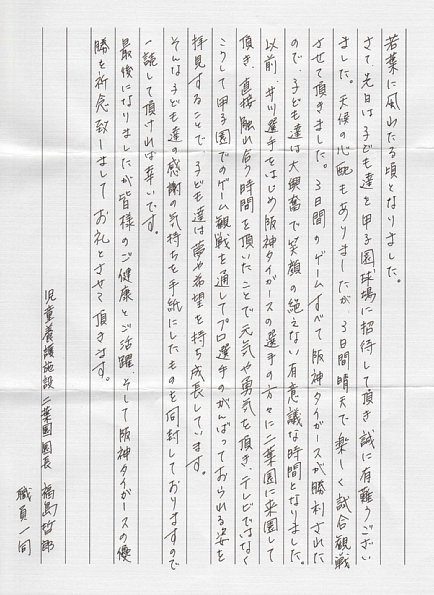 若葉に風わたる頃となりました。
さて先日は子ども達を甲子園球場に招待して頂き誠に有難うござい
ました。天候の心配もありましたが、3日間晴天で楽しく試合観戦
させて頂きました。3日間のゲームすべて阪神タイガースが勝利された
ので、子ども達は大興奮で笑顔の絶えない有意議な時間となりました。
以前、井川選手をはじめ阪神タイガースの選手の方々に二葉園に来園して
頂き、直接触れ合う時間を頂いたことで元気や勇気を頂き、テレビではなく
こうして甲子園でのゲーム観戦を通してプロ選手のがんばっておられる姿を
拝見することで、子ども達は夢や希望を持ち成長しています。
そんな子ども達の感謝の気持ちを手紙にしたものを同封しておりますので
一読して頂ければ幸いです。
最後になりましたが皆様のご健康とご活躍、そして阪神タイガースの優
勝を祈念致しまして お礼とさせて頂きます。
児童養護施設 二葉園園長 福島哲郎
職員一同